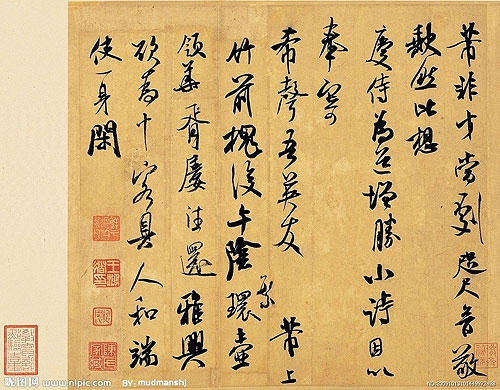 芾非才當劇咫尺音敬
缺然比想
慶侍為道增勝小詩因以
奉寄
希聲吾英友 芾上
竹前槐後午陰環壺
領華胥屢往還雅興
欲為十客具人和端
使一身閑
昵图网 www.nipic.com BY: mudmanshj